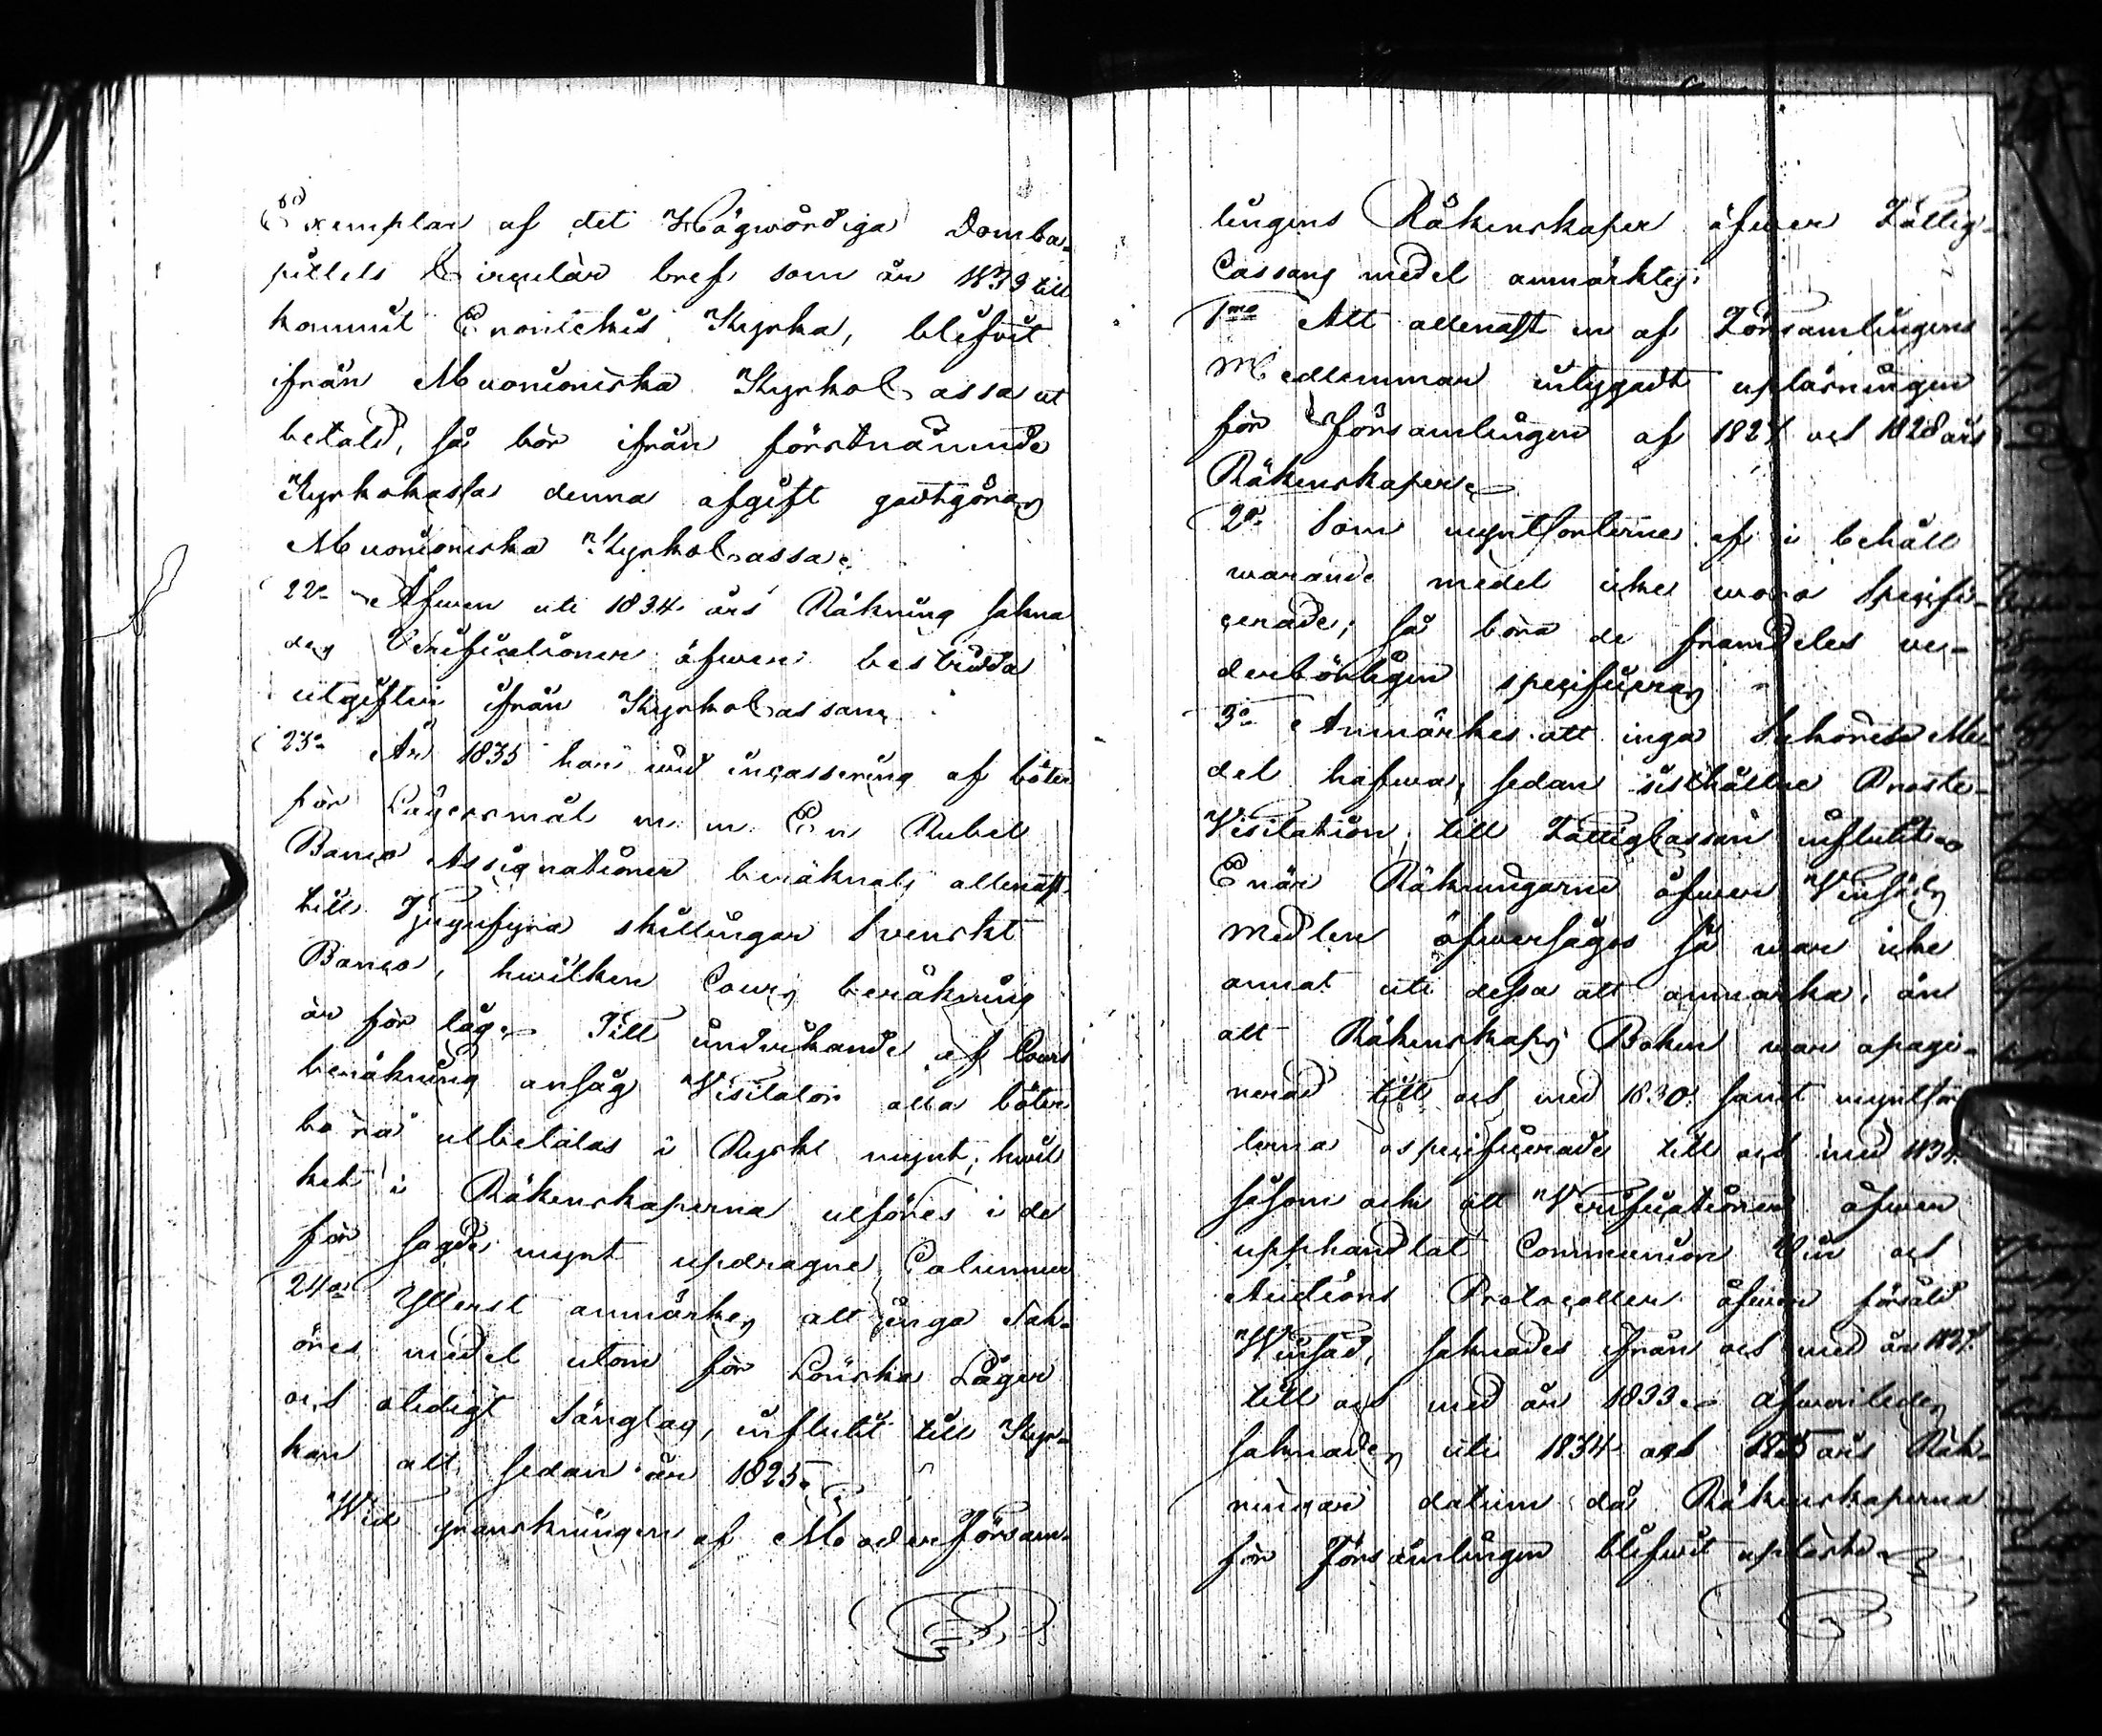 Exemplar af det Högwördiga Domca-
pitlets Circulär bref som år 1839 till
kommit Enontekis Kyrka, blifvit
ifrån Muonioniska KyrkoCassa ut
betald, så bör ifrån förstnämnde
Kyrkokassa denna afgift godtgöras
Muonioniska KyrkoCassa.
22o Äfwen uti 1834 års Räkning sakna
des Verificationer öfwer bestridda
utgifter ifrån KyrkoCassan.
23o År 1835 har wid incassering af böter
för Lägersmål m m En Rubel
Banco Assignationer beräknats allenast
till Tjugufyra skillingar Svenskt
Banco, hwilken Cours beräkning
är för låg. Till undvikande af Cours
beräkning ansåg Visitator alla böter
böra utbetalas i Ryskt mynt, hwil
ket i Räkenskaperna utföres i de
för sagde mynt updragne Columner
24o Ytterst anmärkes att inga Sak-
öres medel utom för Lönska Läger
och otidigt Sänglag, influtit till Kyr-
kan allt sedan år 1825.
Wid granskningen af Moder Församl-
lingens Räkenskaper öfwer Fattig-
Cassans medel anmärktes:
1mo Att allenast en af Församlingens
Medlemmar intygadt upläsningen
för Församlingen af 1827 och 1828 års
Räkenskaper.
2o Som myntsorterne af i behåll
warande medel icke woro Specifi-
cerade; så böra de framdeles ve-
derbörligen specificeras
3o Anmärkes att inga Saköres Me-
del hafwa, sedan sisthållne Proste-
Visitation, till FattigCassan influtit.
Enär Räkningarne öfwer Winsäds
medlen öfwersågos så war icke
annat uti dessa att anmärka, än
att Räkenskaps Boken war opagi-
nerad till och med 1830 samt myntsor
terna ospecificerade till och med 1834.
såsom ock att Verificationer öfwer
upphandlat Communion Vin och
Auctions Protocoller öfwer försåld
Winsäd, saknades ifrån och med år 1827.
till och med år 1833. Äfwenledes
saknades uti 1834 och 1835 års Räk-
ningar datum då Räkenskaperna
för Församlingen blifwit uplästa